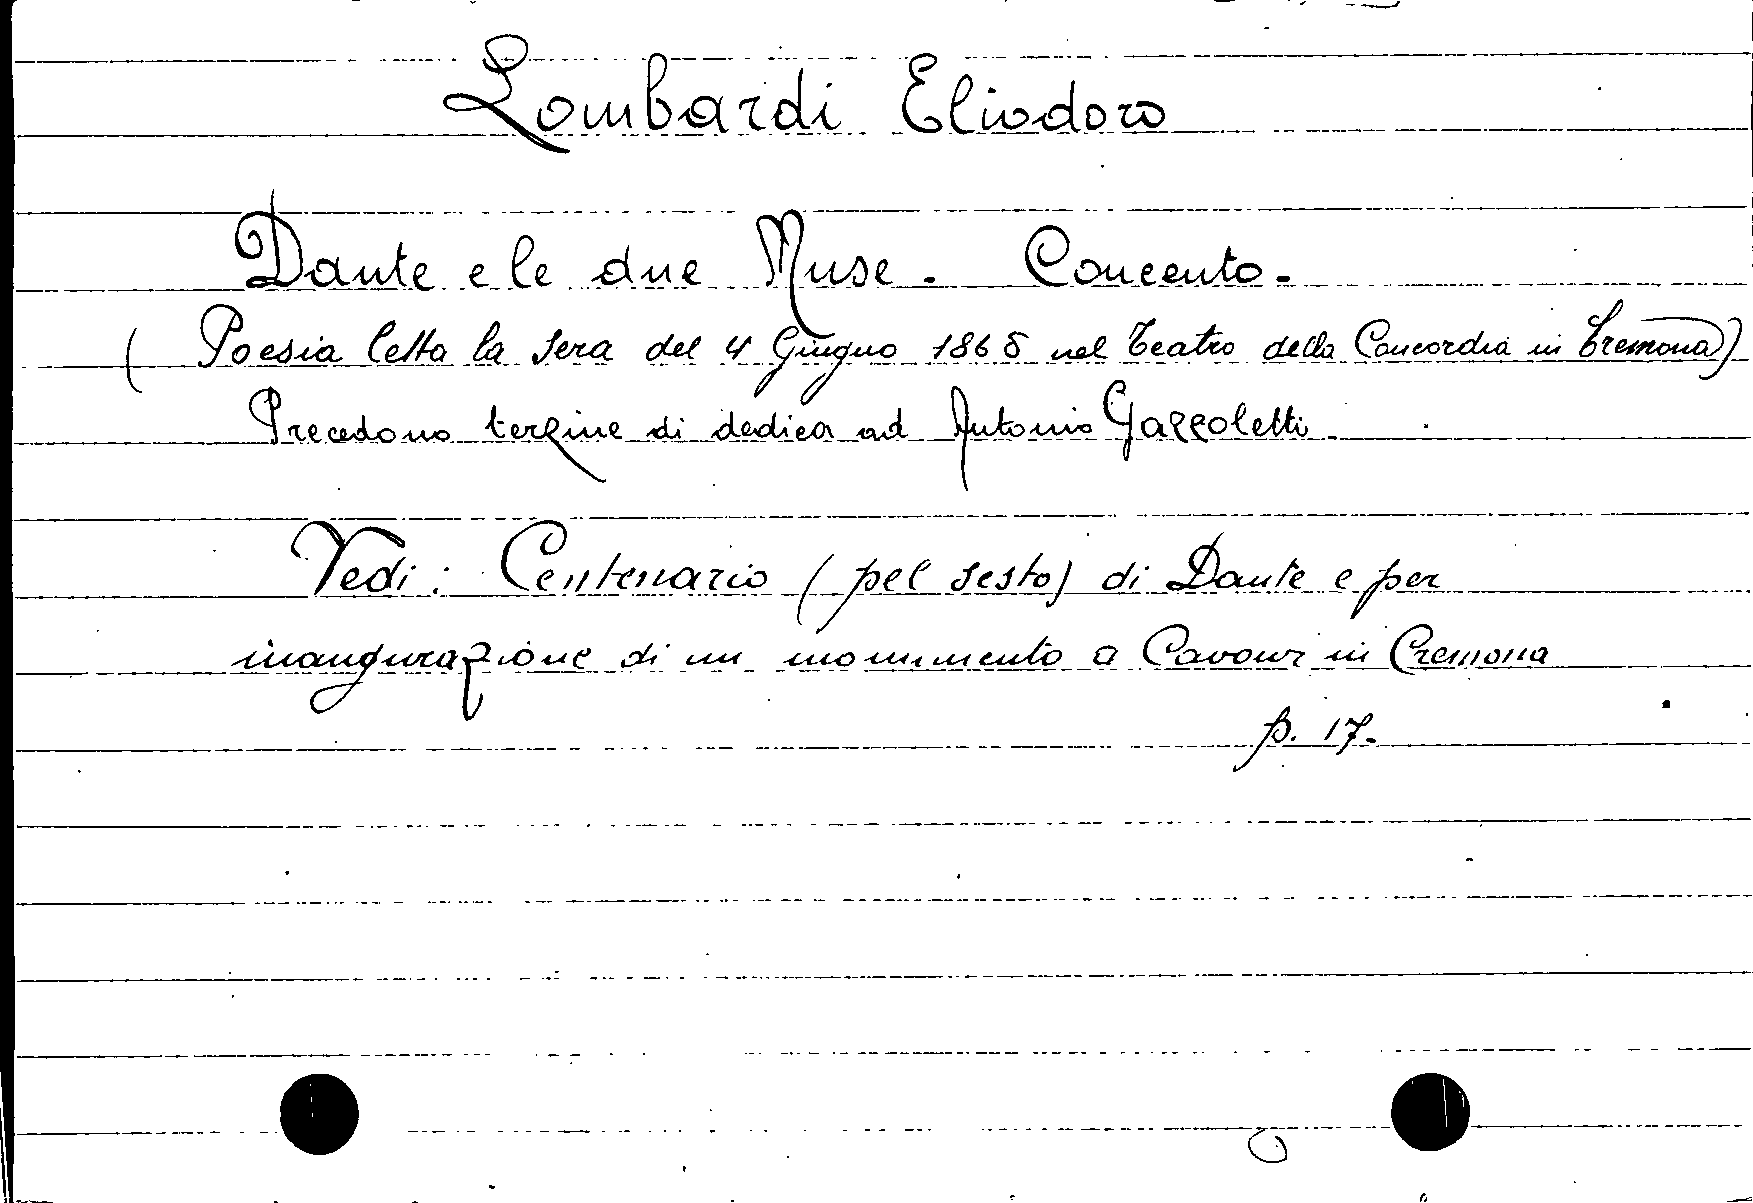 Lombardi Eliodoro
Dante e le due Muse. Concento.
( Poesia letta la sera del 4 Giugno 1865 nel Teatro della Concordia in Cremona)
Precedono terzine di dedica ad Antonio Gazzoletti.
Vedi: Centenario (pel sesto) di Dante e per
inaugurazione di un monumento a Cavour in Cremona
p. 17.